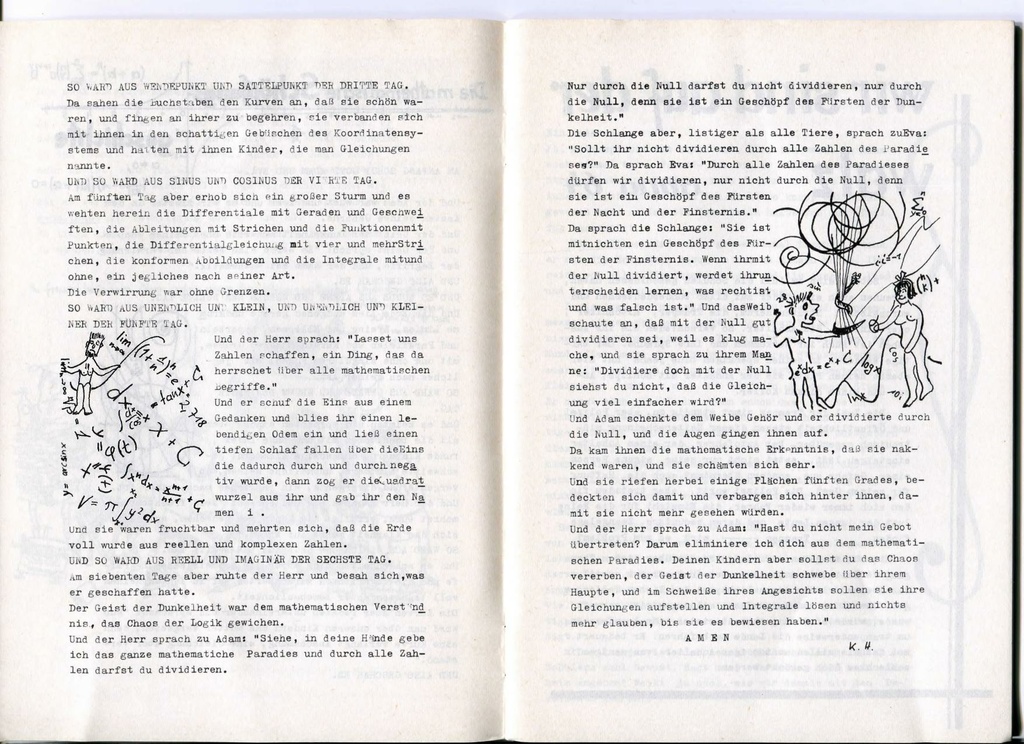 SO WARD AUS WENDEPUNKT UND SATTELPUNKT DER DRITTE TAG.
Da sahen die Buchstaben den Kurven an, daß sie schön wa-
ren, und fingen an ihrer zu begehren, sie verbanden sich
mit ihnen in den schattigen Gebüschen des Koordinatensy-
stems und hatten mit ihnen Kinder, die man Gleichungen
nannte.
UND SO WARD AUS SINUS UND COSINUS DER VIERTE TAG.
Am fünften Tag aber erhob sich ein großer Sturm und es
wehten herein die Differentiale mit Geraden und Geschwei
ften, die Ableitungen mit Strichen und die Funktionenmit
Punkten, die Differentialgleichung mit vier und mehrStri
chen, die konformen Abbildungen und die Integrale mitund
ohne, ein jegliches nach seiner Art.
Die Verwirrung war ohne Grenzen.
SO WARD AUS UNENDLICH UND KLEIN, UND UNENDLICH UND KLEI-
NER DER FÜNFTE TAG.
Und der Herr sprach: "Lasset uns
Zahlen schaffen, ein Ding, das da
herrschet über alle mathematischen
Begriffe."
Und er schuf die Eins aus einem
Gedanken und blies ihr einen le-
bendigen Odem ein und ließ einen
tiefen Schlaf fallen über dieEins
die dadurch durch und durch nega
tiv wurde, dann zog er die Quadrat
wurzel aus ihr und gab ihr den Na
men i .
lim (1+1/n)ⁿ=e
n→∞
= tan x
2,718
x + C
y=φ(t)
∫xⁿdx = xⁿ⁺¹/n+1 + C
V = π∫y²dx
y = arcsin x
Und sie waren fruchtbar und mehrten sich, daß die Erde
voll wurde aus reellen und komplexen Zahlen.
UND SO WARD AUS REELL UND IMAGINÄR DER SECHSTE TAG.
Am siebenten Tage aber ruhte der Herr und besah sich,was
er geschaffen hatte.
Der Geist der Dunkelheit war dem mathematischen Verständ
nis, das Chaos der Logik gewichen.
Und der Herr sprach zu Adam: "Siehe, in deine Hände gebe
ich das ganze mathematiche Paradies und durch alle Zah-
len darfst du dividieren.
Nur durch die Null darfst du nicht dividieren, nur durch
die Null, denn sie ist ein Geschöpf des Fürsten der Dun-
kelheit."
Die Schlange aber, listiger als alle Tiere, sprach zuEva:
"Sollt ihr nicht dividieren durch alle Zahlen des Paradie
ses?" Da sprach Eva: "Durch alle Zahlen des Paradieses
dürfen wir dividieren, nur nicht durch die Null, denn
sie ist ein Geschöpf des Fürsten
der Nacht und der Finsternis."
Da sprach die Schlange: "Sie ist
mitnichten ein Geschöpf des Für-
sten der Finsternis. Wenn ihrmit
der Null dividiert, werdet ihrun
terscheiden lernen, was rechtist
und was falsch ist." Und dasWeib
schaute an, daß mit der Null gut
dividieren sei, weil es klug ma-
che, und sie sprach zu ihrem Man
ne: "Dividiere doch mit der Null
siehst du nicht, daß die Gleich-
ung viel einfacher wird?"
i·i=-1
eˣdx = eˣ + C
log x
ln x
Und Adam schenkte dem Weibe Gehör und er dividierte durch
die Null, und die Augen gingen ihnen auf.
Da kam ihnen die mathematische Erkenntnis, daß sie nak-
kend waren, und sie schämten sich sehr.
Und sie riefen herbei einige Flächen fünften Grades, be-
deckten sich damit und verbargen sich hinter ihnen, da-
mit sie nicht mehr gesehen würden.
Und der Herr sprach zu Adam: "Hast du nicht mein Gebot
übertreten? Darum eliminiere ich dich aus dem mathemati-
schen Paradies. Deinen Kindern aber sollst du das Chaos
vererben, der Geist der Dunkelheit schwebe über ihrem
Haupte, und im Schweiße ihres Angesichts sollen sie ihre
Gleichungen aufstellen und Integrale lösen und nichts
mehr glauben, bis sie es bewiesen haben."
A M E N
K. W.